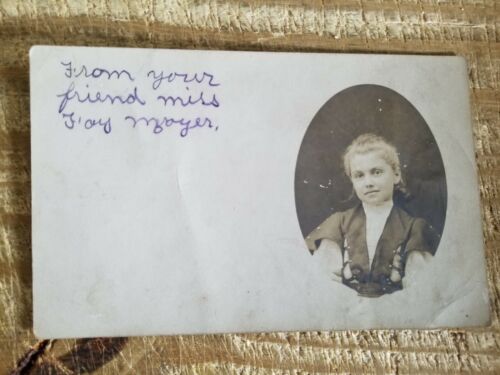 From your
friend miss
Foy Moyer.